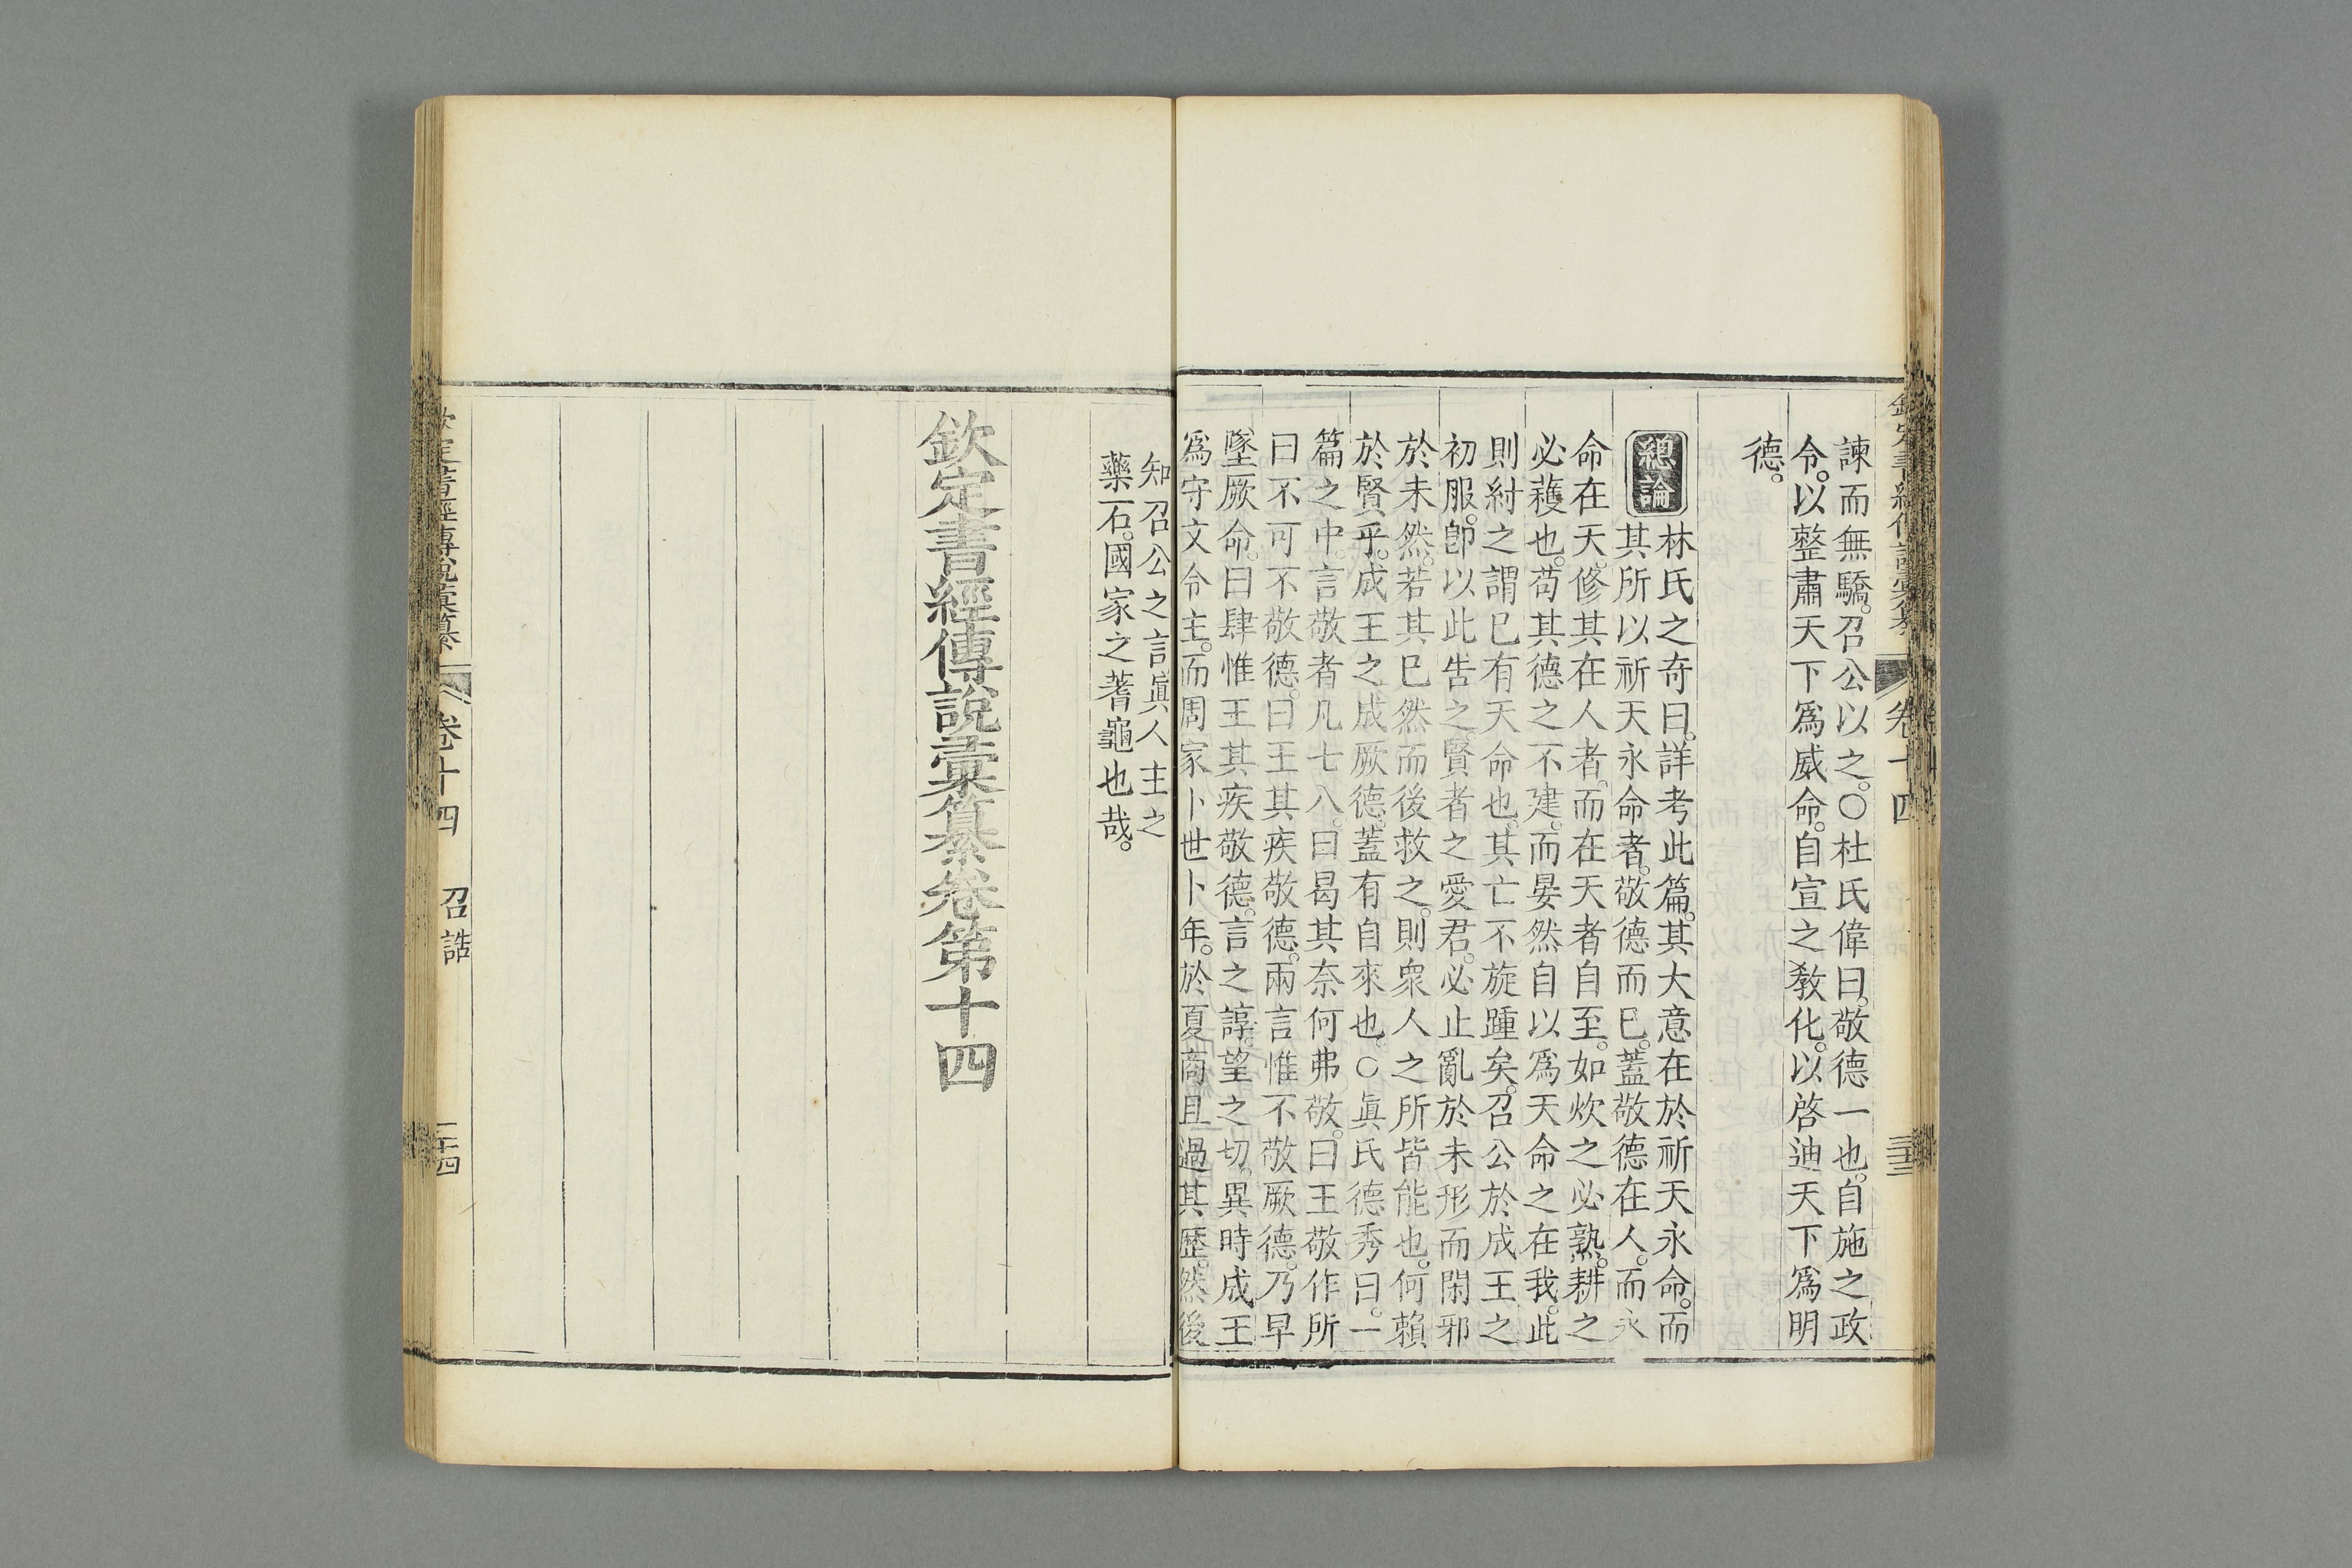 欽定書經傳說彙纂 卷十四
諫而無驕。召公以之。○杜氏偉曰。敬德一也。自施之政
令。以整肅天下爲威命。自宣之教化。以啓迪天下爲明
德。
總論
林氏之奇曰。詳考此篇。其大意在於祈天永命。而
其所以祈天永命者。敬德而已。蓋敬德在人。而永
命在天。修其在人者。而在天者自至。如炊之必熟。耕之
必穫也。苟其德之不建。而晏然自以爲天命之在我。此
則紂之謂已有天命也。其亡不旋踵矣。召公於成王之
初服。卽以此告之。賢者之愛君。必止亂於未形而閑邪
於未然。若其已然而後救之。則衆人之所皆能也。何賴
於賢乎。成王之成厥德。蓋有自來也。○眞氏德秀曰。一
篇之中。言敬者凡七八。曰曷其奈何弗敬。曰王敬作所
曰不可不敬德。曰王其疾敬德。兩言惟不敬厥德。乃早
墜厥命。曰肆惟王其疾敬德。言之諄。望之切。異時成王
爲守文令主。而周家卜世卜年。於夏商且過其歷。然後
知召公之言眞人主之
藥石。國家之蓍龜也哉。
欽定書經傳說彙纂卷第十四
定書經傳說彙纂 卷十四 召誥 二十四